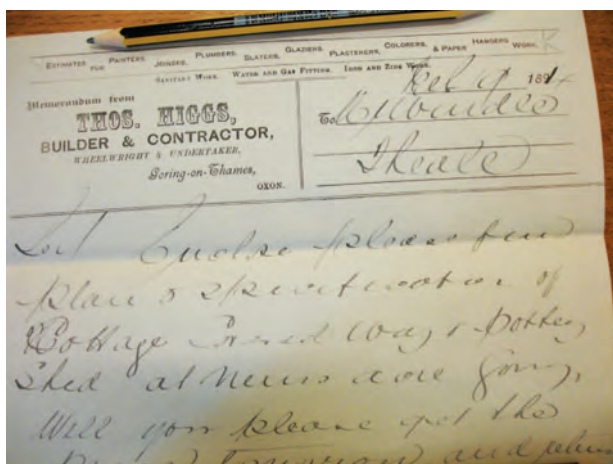 ESTIMATES FOR PAINTERS, JOINERS, PLUMBERS, SLATERS, GLAZIERS, PLASTERERS, COLORERS, & PAPER HANGERS WORK.
SANITARY WORK. WATER AND GAS FITTING. IRON AND ZINC WORK.
Feb 9 1894
Memorandum from
To
THOS. HIGGS,
BUILDER & CONTRACTOR,
WHEELWRIGHT & UNDERTAKER,
Theale
Goring-on-Thames,
OXON.
Enclose please find
plan & specification of
Cottage Covered way & Potting
Shed at Goring,
Will you please get the
tomorrow and